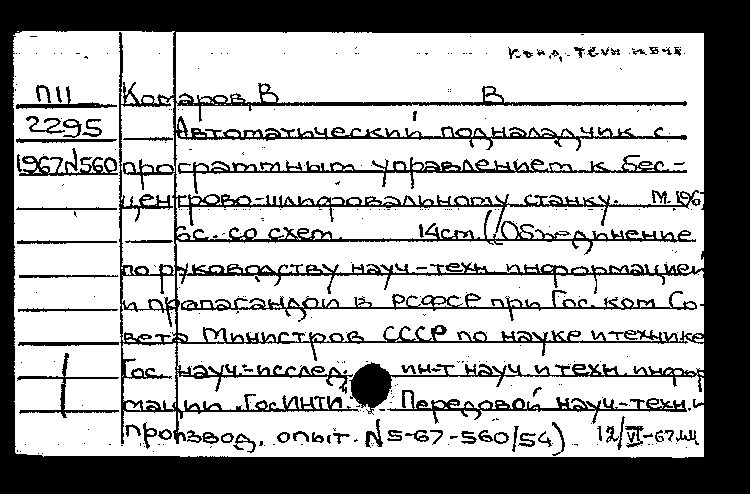 П11 Комаров, В В
2295 Автоматический подналадчик с
1967N560 программным управлением к бес-
центрово-шлифовальному станку. М. 1967
6с. со схем. 14см. (Объединение
по руководству науч-техн информацией
и пропагандой в РСФСР при Гос. ком Со-
вета Министров СССР по науке и технике
Гос. науч.-исслед. ин-т науч и техн. инфор
мации. ГосИНТИ. Передовой науч-техн. и
производ. опыт. N5-67-560/54) 12/VI-67